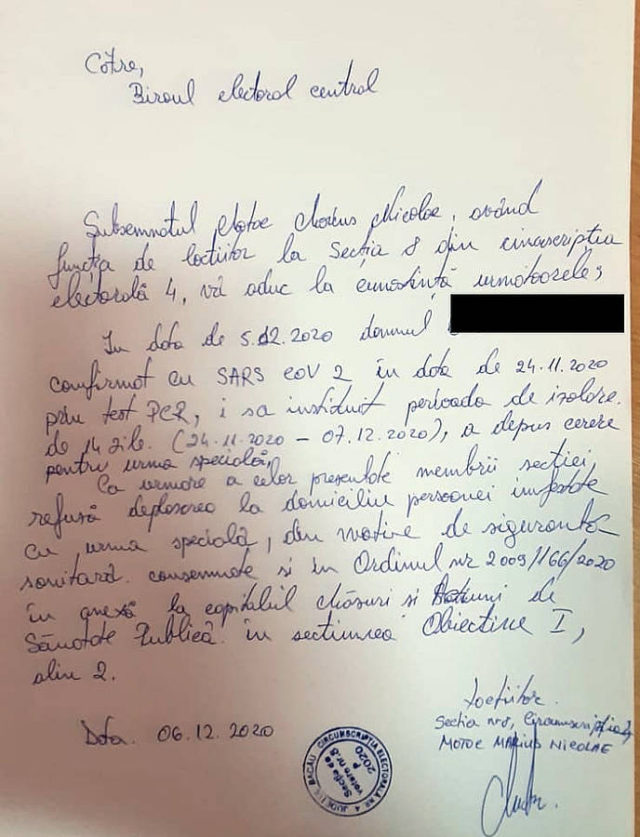 Cotre,
Biroul electoral central
Subsemnatul Motoc Marius Nicolae, având
funcția de loctiitor la Secția 8 din circumscriptia
electorală 4, vă aduc la cunostință urmatoarele;
In data de 5.12.2020 domnul
confirmat cu SARS COV 2 în data de 24.11.2020
prin test PCR, i sa instituit perioada de izolare
de 14 zile. (24.11.2020 - 07.12.2020), a depus cerere
pentru urma specială,
Ca urmare a celor prezentate membrii secției
refuză deplasarea la domiciliu persoanei infectate
cu urma specială, din motive de siguranta
sanitară. consemnate si in Ordinul nr 2009/166/2020
în anexă la capitolul Măsuri si Actiuni de
Sănătate Publică în sectiunea Obiective I,
alin 2.
Data. 06.12.2020
Loctiitor.
Sectia nr8, Circumscriptia 4
MOTOC MARIUS NICOLAE
CIRCUMSCRIPȚIA ELECTORALĂ NR. 4 JUDEȚUL BACĂU
Secția de
votare nr. 8
P
2020